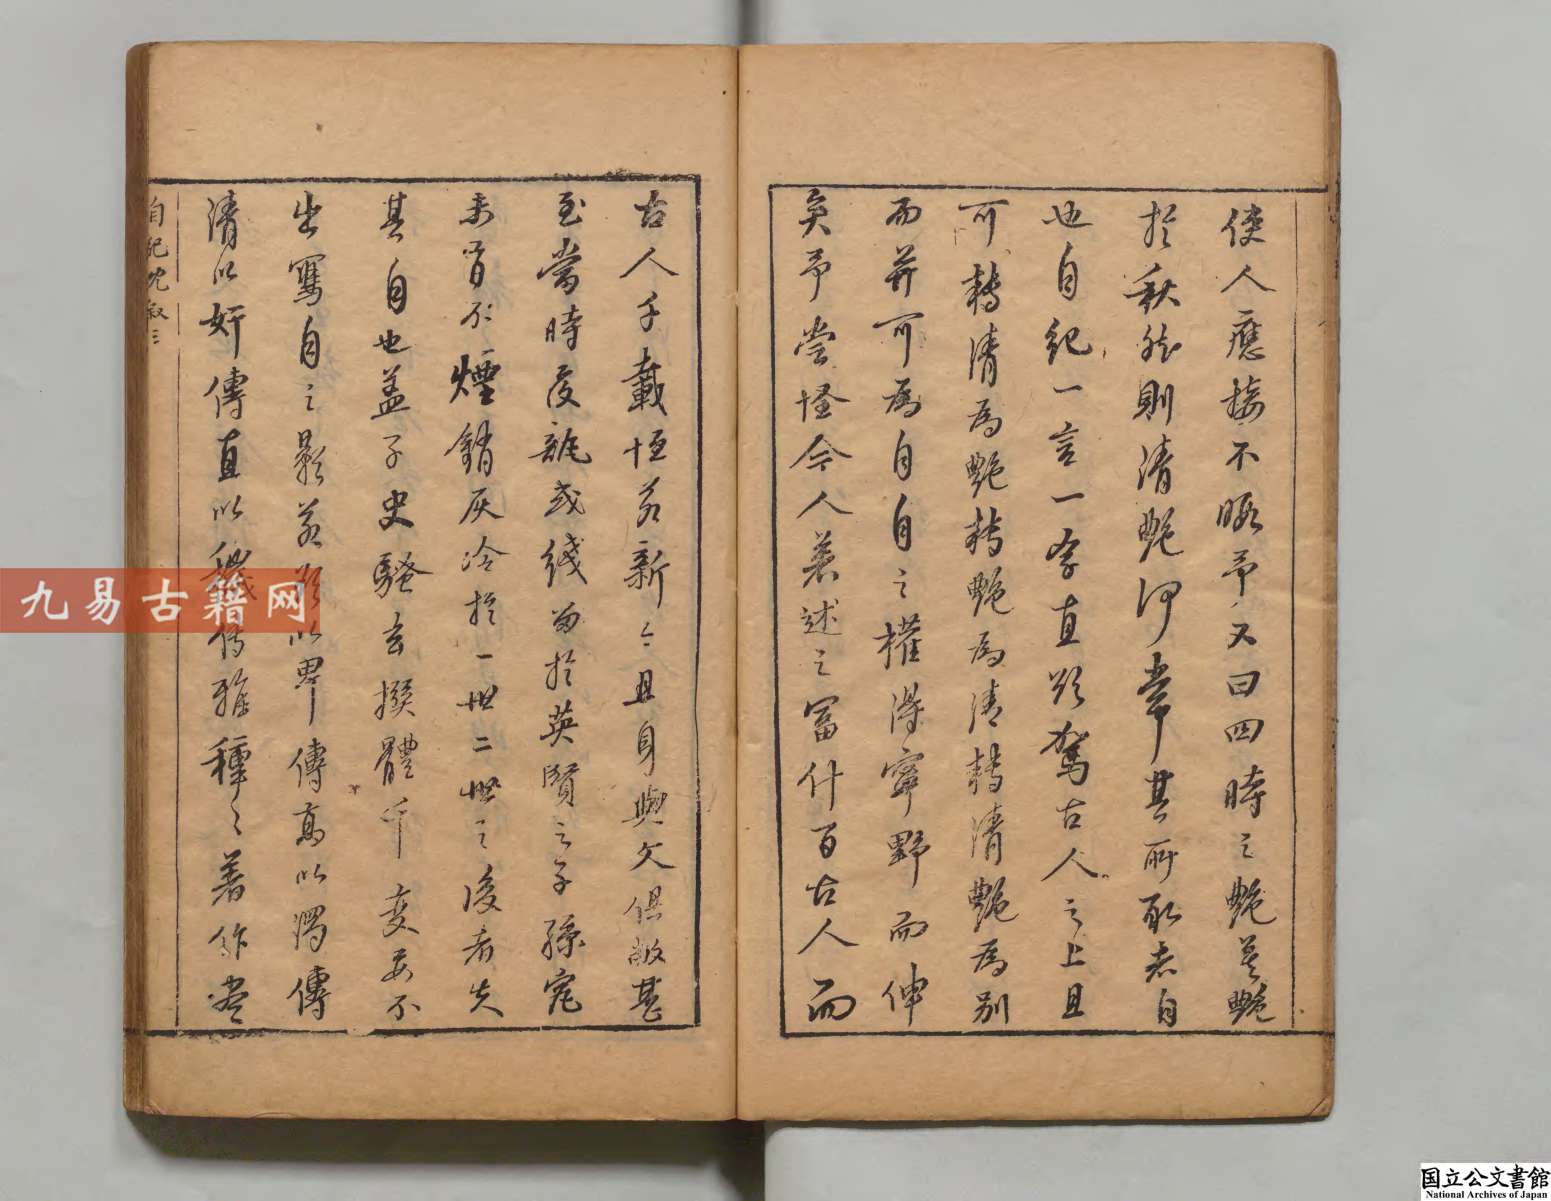 使人應接不暇予又曰四時之艷莫艷
於秋然則清艷何常其所取者自
也自紀一言一字直欲駕古人之上且
可轉清為艷轉艷為清轉清艷為別
而并可為自自之權得寧野而伸
矣予嘗怪今人著述之富什百古人而
古人千載恒若新今且身與文俱敝甚
至當時覆瓿或綫留於英賢之子孫究
未有不煙銷灰冷於一世二世之後者失
其自也蓋子史騷玄撰體千變要不
出寫自之影若欲以卑傳高以濁傳
清以奸傳直以穢傳雅種種著作盡
自紀 敘 三
九易古籍网
国立公文書館
National Archives of Japan